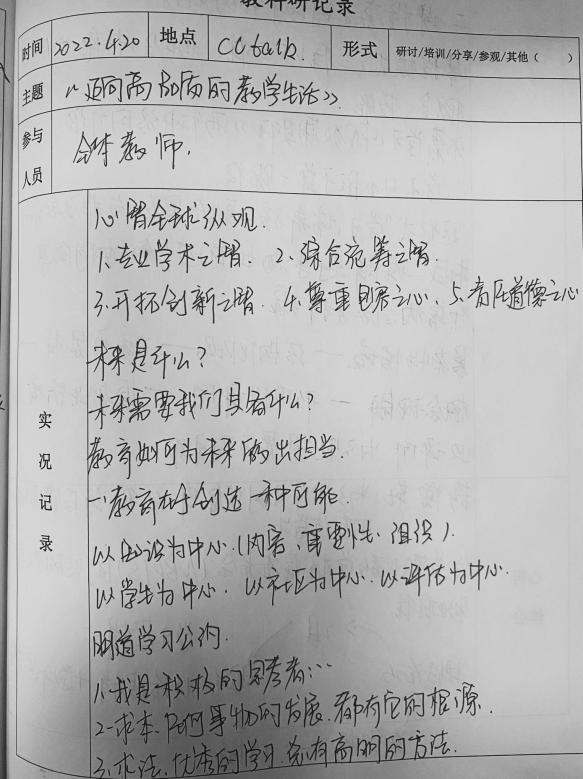 教科研记录
时间 2022.4.20 地点 CCtalk. 形式 研讨/培训/分享/参观/其他（ ）
主题 《迈向高品质的教学生活》.
参与人员 全体教师.
实况记录
心智全球纵观.
1.专业学术之智. 2.综合统筹之智.
3.开拓创新之智. 4.尊重包容之心. 5.责任道德之心
未来是什么?
未来需要我们具备什么?
教育如何为未来做出担当.
一.教育在于创造一种可能.
以知识为中心.(内容、重要性、组织).
以学生为中心. 以社区为中心. 以评估为中心.
明道学习公约.
1.我是积极的思考者…
2.求本.任何事物的发展.都有它的根源.
3.求法.优秀的学习.总有高明的方法.